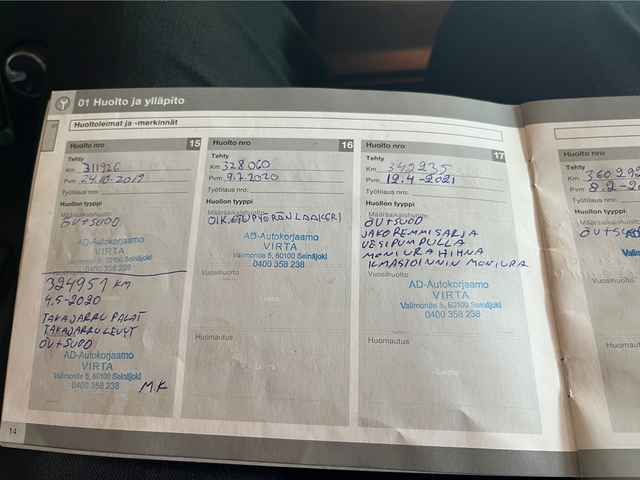 01 Huolto ja ylläpito
Huoltoleimat ja -merkinnät
Huolto nro 15
Tehty
Km 311926
Pvm 24.10.2019
Työtilaus nro:
Huollon tyyppi
Määräaikaishuolto
ÖV+SUOD
AD-Autokorjaamo
VIRTA
Valimontie 5, 60100 Seinäjoki
0400 358 238
324951 KM
4.5-2020
TAKAJARRU PALAT
TAKAJARRULEVYT
ÖV+SUOD
AD-Autokorjaamo
VIRTA
Valimontie 5, 60100 Seinäjoki
0400 358 238
M.K
14
Huolto nro 16
Tehty
Km 328060
Pvm 9.7.2020
Työtilaus nro:
Huollon tyyppi
Määräaikaishuolto
OIK.ETUPYÖRÄNLAAKERI
AD-Autokorjaamo
VIRTA
Valimontie 5, 60100 Seinäjoki
0400 358 238
Vuosihuolto
Leima
Huomautus
Leima
Huolto nro 17
Tehty
Km 342235
Pvm 12.4-2021
Työtilaus nro:
Huollon tyyppi
Määräaikaishuolto
ÖV+SUOD
JAKOREMMISARJA
VESIPUMPULLA
MONIURA HIHNA
ILMASTOINNIN MONIURA
Vuosihuolto
AD-Autokorjaamo
VIRTA
Valimontie 5, 60100 Seinäjoki
0400 358 238
Huomautus
Leima
Huolto nro
Tehty
Km
Pvm 8.2-20
Työtilaus nro:
Huollon tyyppi
Määräaikaishuolto
Vuosihuolto
Huomautus